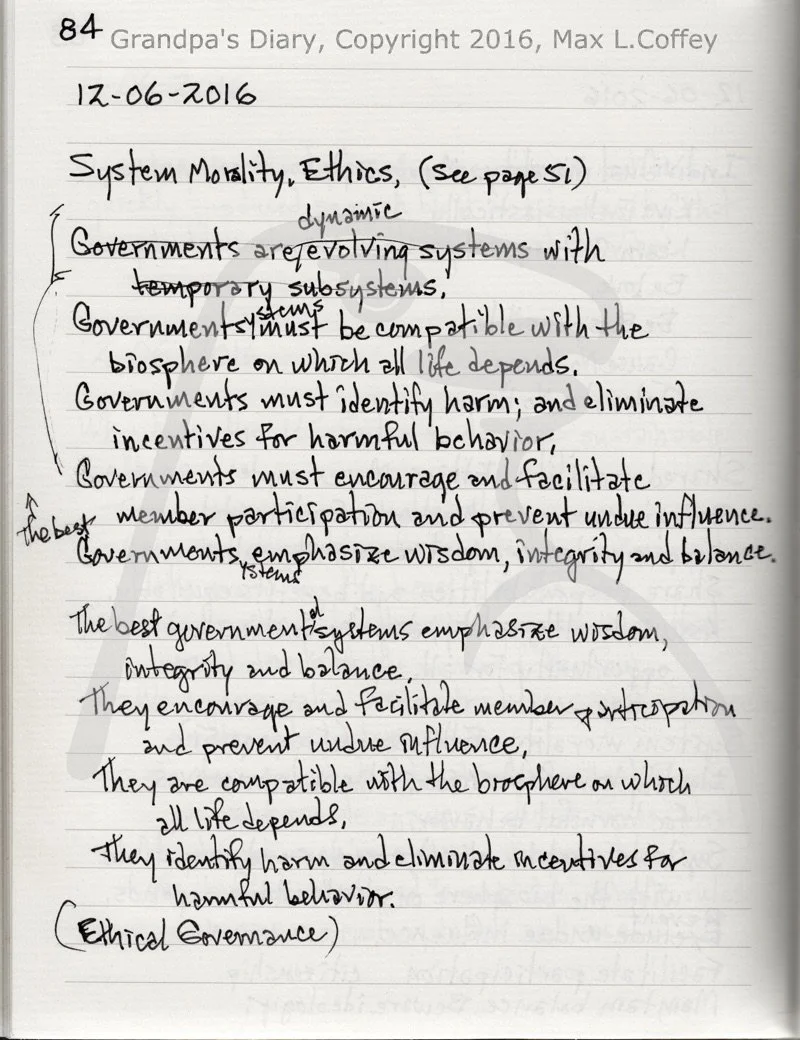 84
Grandpa's Diary, Copyright 2016, Max L.Coffey
12-06-2016
System Morality, Ethics, (See page 51)
dynamic
Governments are evolving systems with
temporary subsystems.
ystems
Governments must be compatible with the
biosphere on which all life depends.
Governments must identify harm; and eliminate
incentives for harmful behavior.
Governments must encourage and facilitate
the best
member participation and prevent undue influence.
Governments emphasize wisdom, integrity and balance.
ystems
The best governmental systems emphasize wisdom,
integrity and balance.
They encourage and facilitate member participation
and prevent undue influence.
They are compatible with the biosphere on which
all life depends.
They identify harm and eliminate incentives for
harmful behavior.
(Ethical Governance)